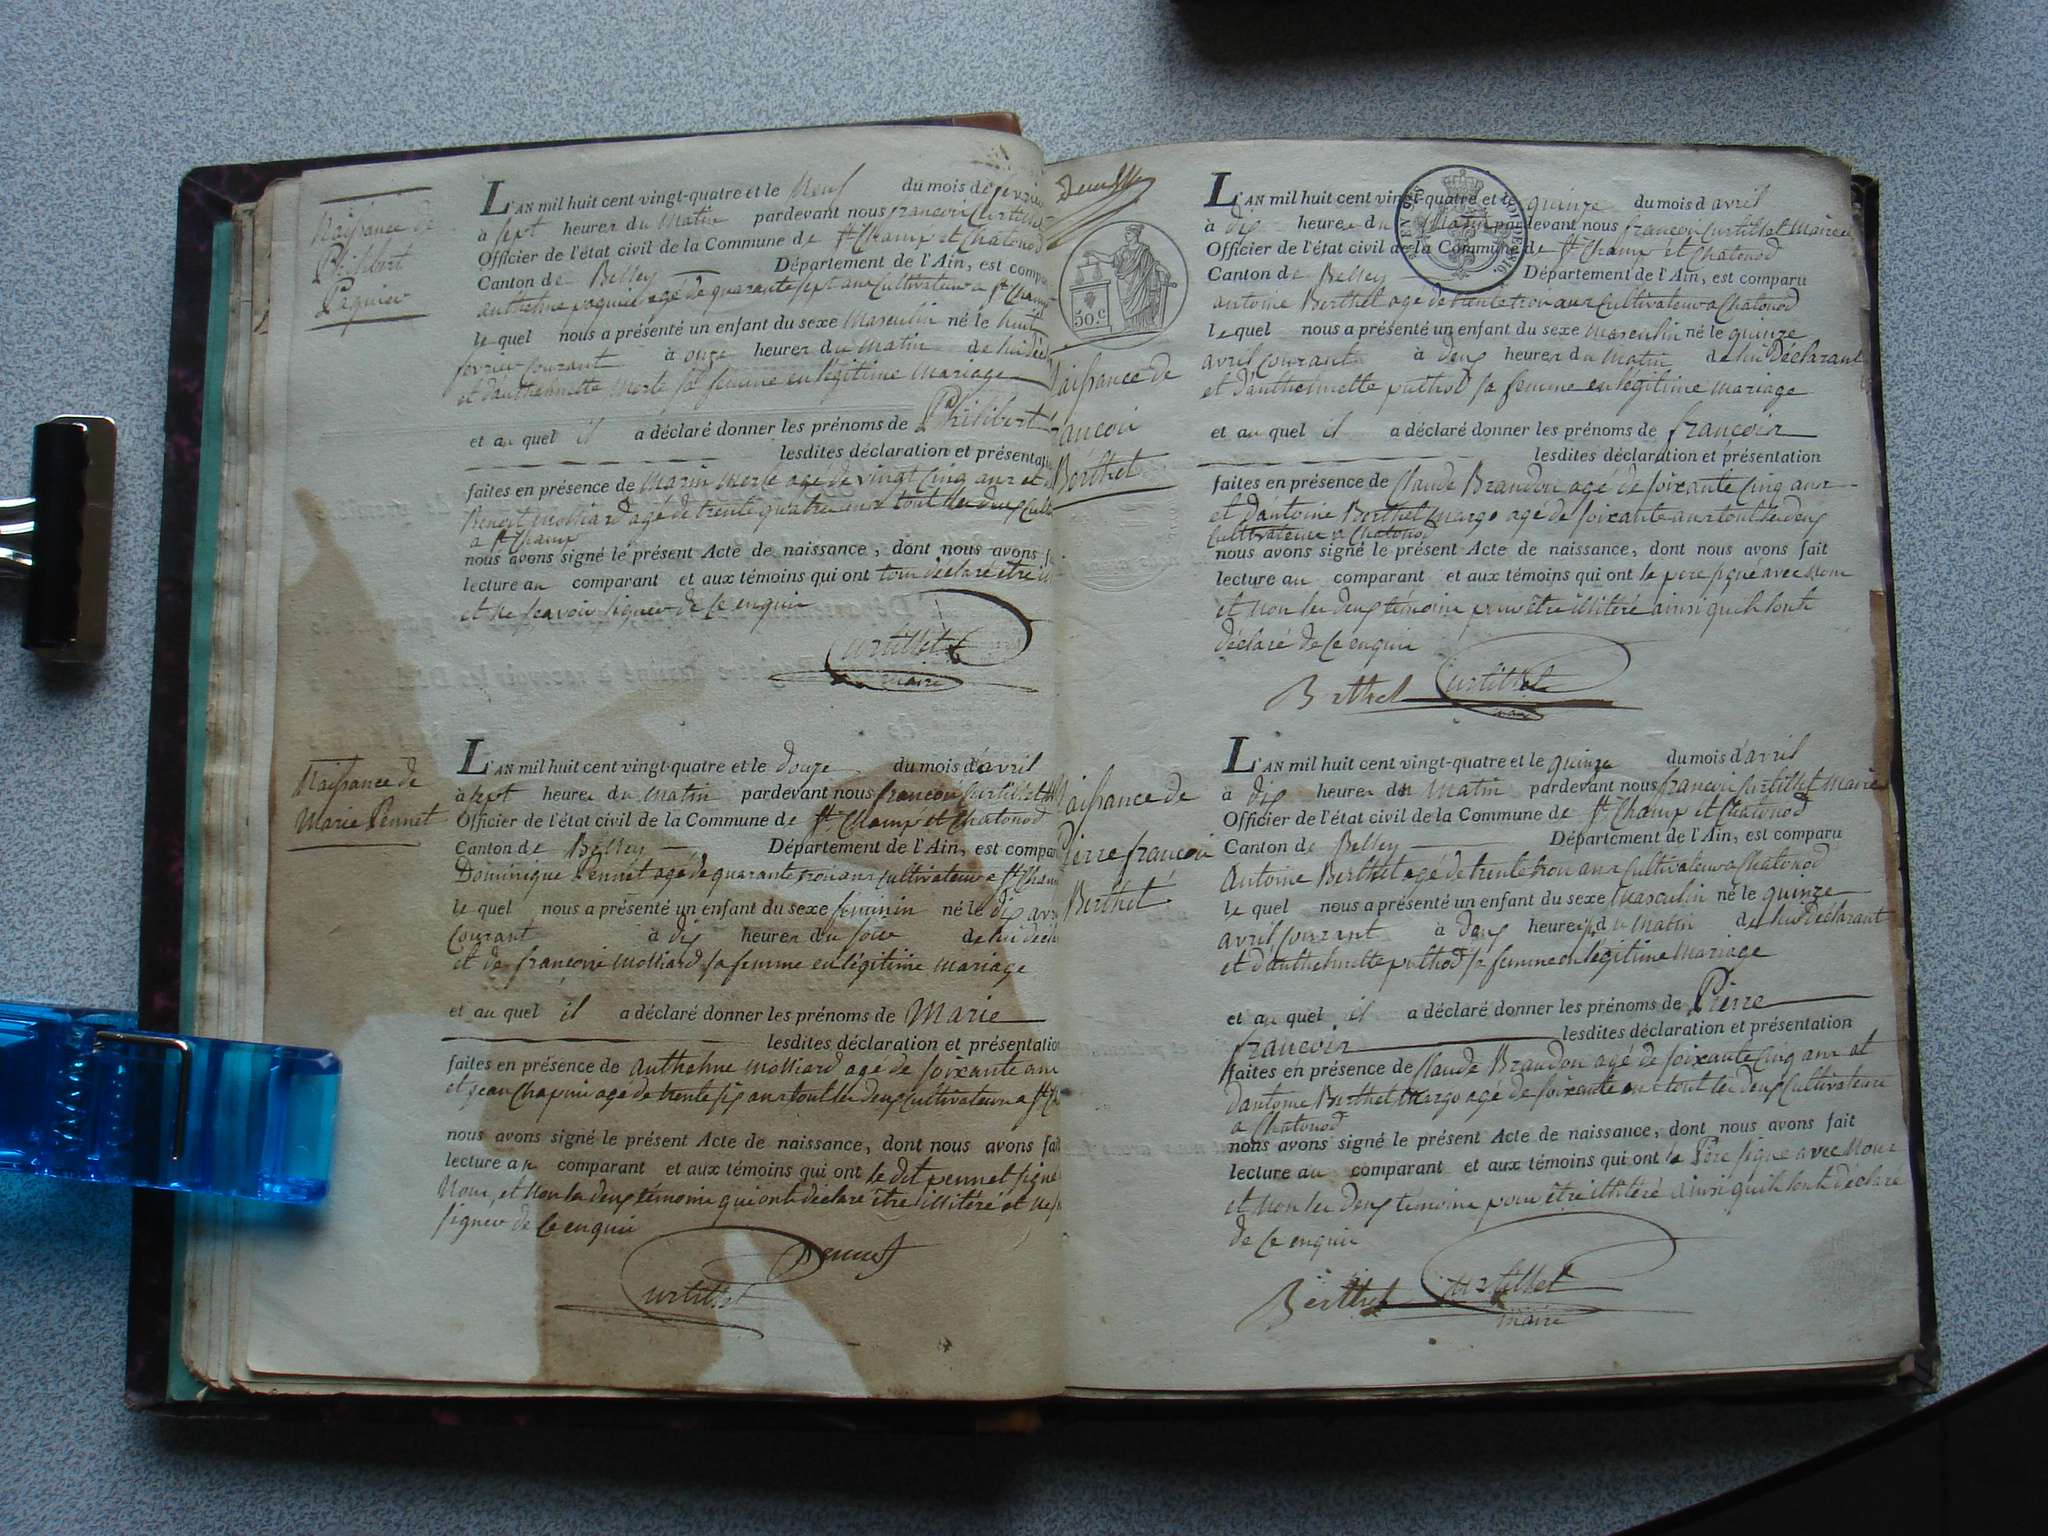 Naissance de
Philibert
Paquier
L'AN mil huit cent vingt-quatre et le Neuf du mois de fevrier
à sept heures du Matin pardevant nous francois Curtillet
Officier de l'état civil de la Commune de St Champ et Chatonod
Canton de Belley Département de l'Ain, est comp
anthelme paquier agé de quarante sept ans Cultivateur a St Champ
le quel nous a présenté un enfant du sexe Masculin né le huit
fevrier courant à onze heures du Matin de lui décl
et d'anthelmette Merle sa femme en légitime Mariage
et au quel il a déclaré donner les prénoms de Philibert
lesdites déclaration et présentat
faites en présence de Marin Merle agé de vingt Cinq ans et
Benoit Molliard agé de trente quatre ans tout les deux Cult
a St Champ
nous avons signé le présent Acte de naissance, dont nous avons f
lecture au comparant et aux témoins qui ont tous déclaré être
et ne scavoir signer de ce enquis
Curtillet
Maire
Naissance de
Marie Pennet
L'AN mil huit cent vingt-quatre et le douze du mois d'avril
à sept heures du Matin pardevant nous francois Curtillet
Officier de l'état civil de la Commune de St Champ et Chatonod
Canton de Belley Département de l'Ain, est compar
Dominique Pennet agé de quarante trois ans Cultivateur a St Cham
le quel nous a présenté un enfant du sexe feminin né le dix avr
Courant à dix heures du soir de lui décl
et de francoise Molliard sa femme en légitime Mariage
et au quel il a déclaré donner les prénoms de Marie
lesdites déclaration et présentation
faites en présence de anthelme Molliard agé de soixante ans
et jean Chapuis agé de trente six ans tout les deux Cultivateurs a St C
nous avons signé le présent Acte de naissance, dont nous avons fai
lecture au comparant et aux témoins qui ont le dit pennet signé
Nous, et non les deux témoins qui ont déclaré être illitéré et ne
signer de ce enquis
Pennet
Curtillet
50.c
Naissance de
francois
Berthet
L'AN mil huit cent vingt-quatre et le quinze du mois d'avril
à dix heures du Matin pardevant nous francois Curtillet Maire
Officier de l'état civil de la Commune de St Champ et Chatonod
Canton de Belley Département de l'Ain, est comparu
antoine Berthet agé de trente trois ans Cultivateur a Chatonod
le quel nous a présenté un enfant du sexe Masculin né le quinze
avril courant à deux heures du Matin de lui Déclarant
et d'anthelmette puthod sa femme en légitime Mariage
et au quel il a déclaré donner les prénoms de francois
lesdites déclaration et présentation
faites en présence de Claude Brandon agé de soixante Cinq ans
et d'antoine Berthet Margo agé de soixante ans tout les deux
Cultivateurs a Chatonod
nous avons signé le présent Acte de naissance, dont nous avons fait
lecture au comparant et aux témoins qui ont le pere signé avec Nous
et non les deux témoins pour être illitéré ainsi qu'ils l'ont
déclaré de ce enquis
Berthet Curtillet
Naissance de
Pierre francois
Berthet
L'AN mil huit cent vingt-quatre et le quinze du mois d'avril
à dix heures du Matin pardevant nous francois Curtillet Maire
Officier de l'état civil de la Commune de St Champ et Chatonod
Canton de Belley Département de l'Ain, est comparu
Antoine Berthet agé de trente trois ans Cultivateur a Chatonod
le quel nous a présenté un enfant du sexe Masculin né le quinze
avril courant à deux heures du Matin de lui déclarant
et d'anthelmette puthod sa femme en légitime Mariage
et au quel il a déclaré donner les prénoms de Pierre
francois lesdites déclaration et présentation
faites en présence de Claude Brandon agé de soixante Cinq ans et
d'antoine Berthet Margo agé de soixante ans tout les deux Cultivateurs
a Chatonod
nous avons signé le présent Acte de naissance, dont nous avons fait
lecture au comparant et aux témoins qui ont le Père signé avec Nous
et non les deux témoins pour être illitéré ainsi qu'ils l'ont déclaré
de ce enquis
Berthet Curtillet
maire